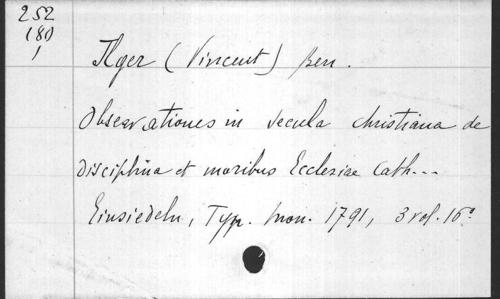 252
(81)
1
Ilger (Vincent) Ben.
Observationes in secula christiana de
disciplina et moribus Ecclesiae Cath...
Einsiedeln, Typ. mon. 1791, 3 vol. 16º